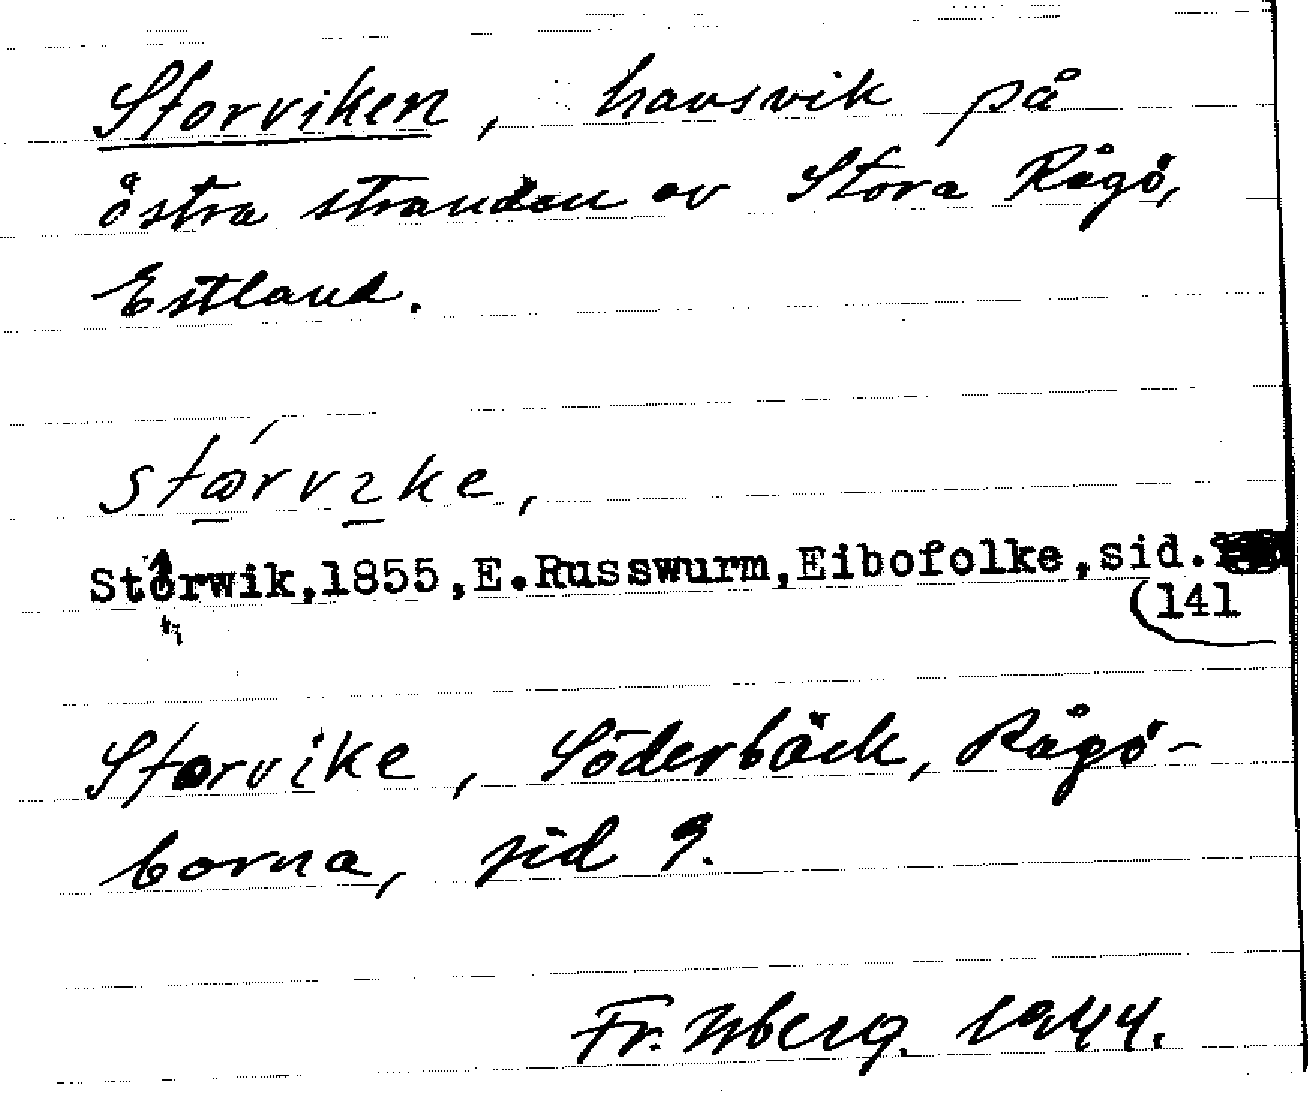 Storviken, havsvik på
östra stranden av Stora Rågö,
Estland.
stǿrvike,
Storwik, 1855, E. Russwurm, Eibofolke, sid.
(141
Storvike, Söderbäck, Rågö-
borna, sid 9.
Fr. Wberg. 1944.